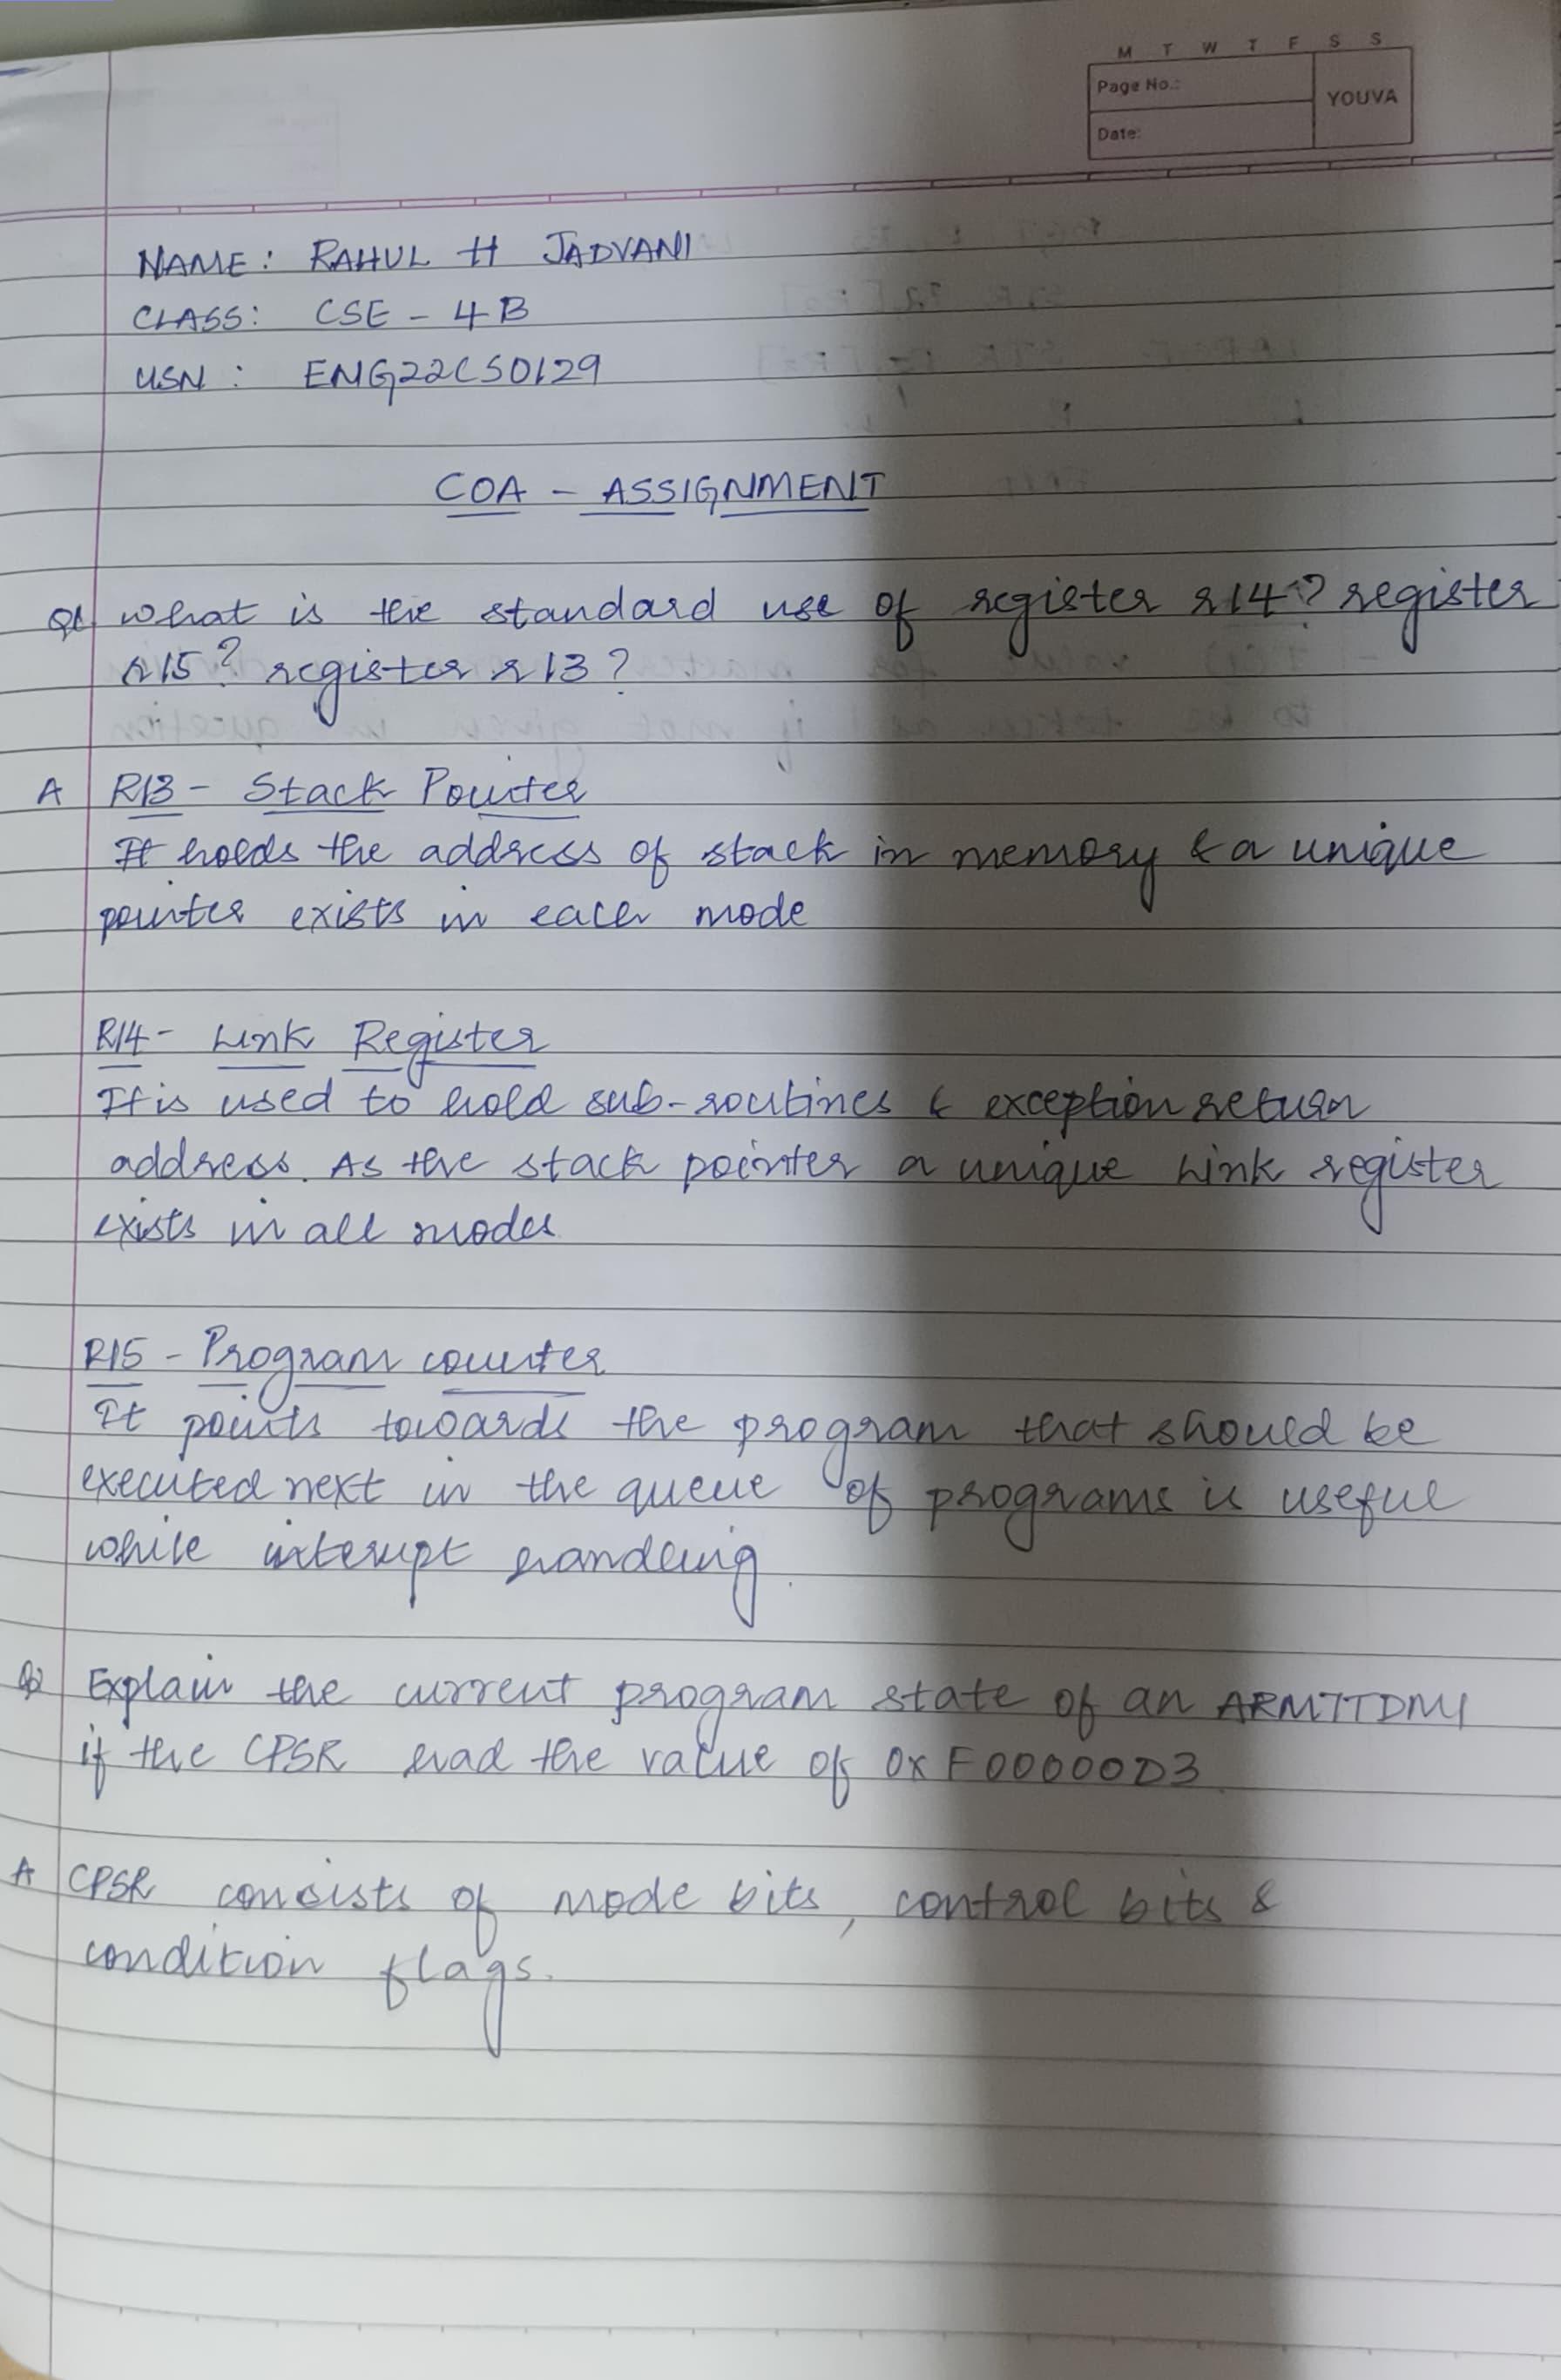 M T W T F S S
Page No.:
YOUVA
Date:
NAME: RAHUL H JADVANI
CLASS: CSE - 4B
USN: ENG22CS0129
COA - ASSIGNMENT
Q1 What is the standard use of register r14? register
r15? register r13?
A R13 - Stack Pointer
It holds the address of stack in memory & a unique
pointer exists in each mode
R14 - Link Register
It is used to hold sub-routines & exception return
address. As the stack pointer a unique Link register
exists in all modes
R15 - Program counter
It points towards the program that should be
executed next in the queue of programs is useful
while interupt handling.
Q2 Explain the current program state of an ARM7TDMI
if the CPSR had the value of 0xF00000D3
A CPSR consists of mode bits, control bits &
condition flags.